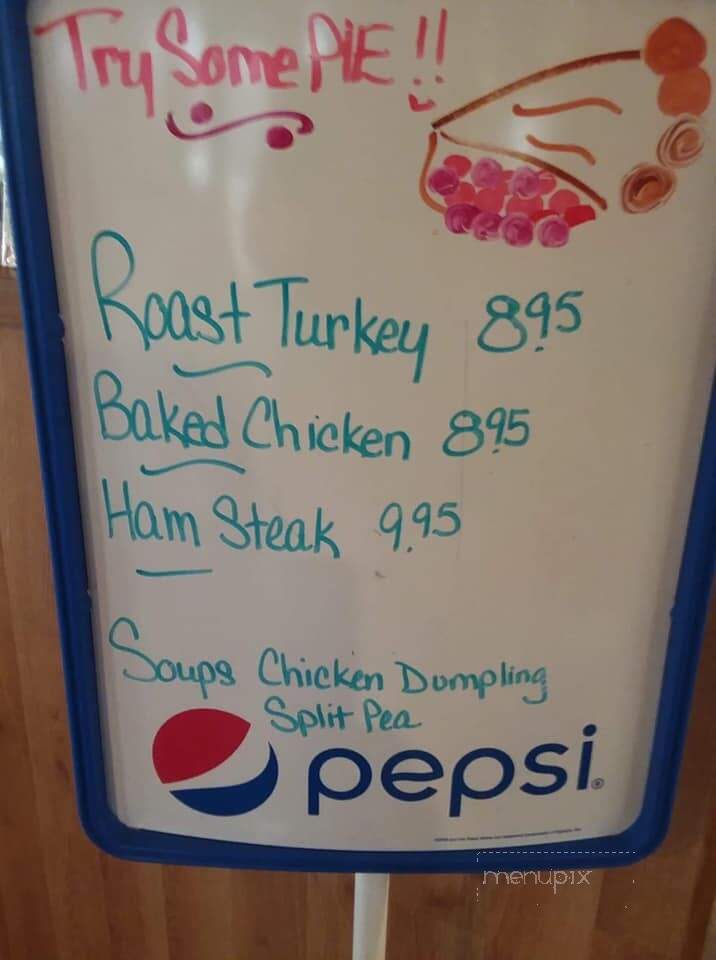 Try Some PIE!!
Roast Turkey 8.95
Baked Chicken 8.95
Ham Steak 9.95
Soups Chicken Dumpling
Split Pea
pepsi®
menupix